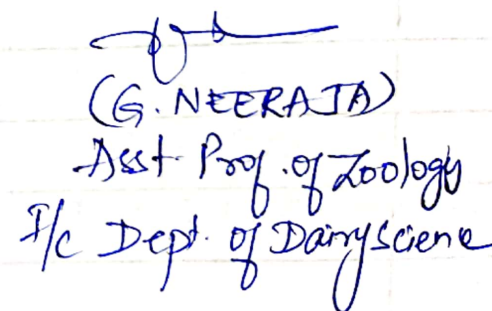 (G. NEERAJA)
Asst. Prof. of Zoology
I/c Dept. of Dairy Science